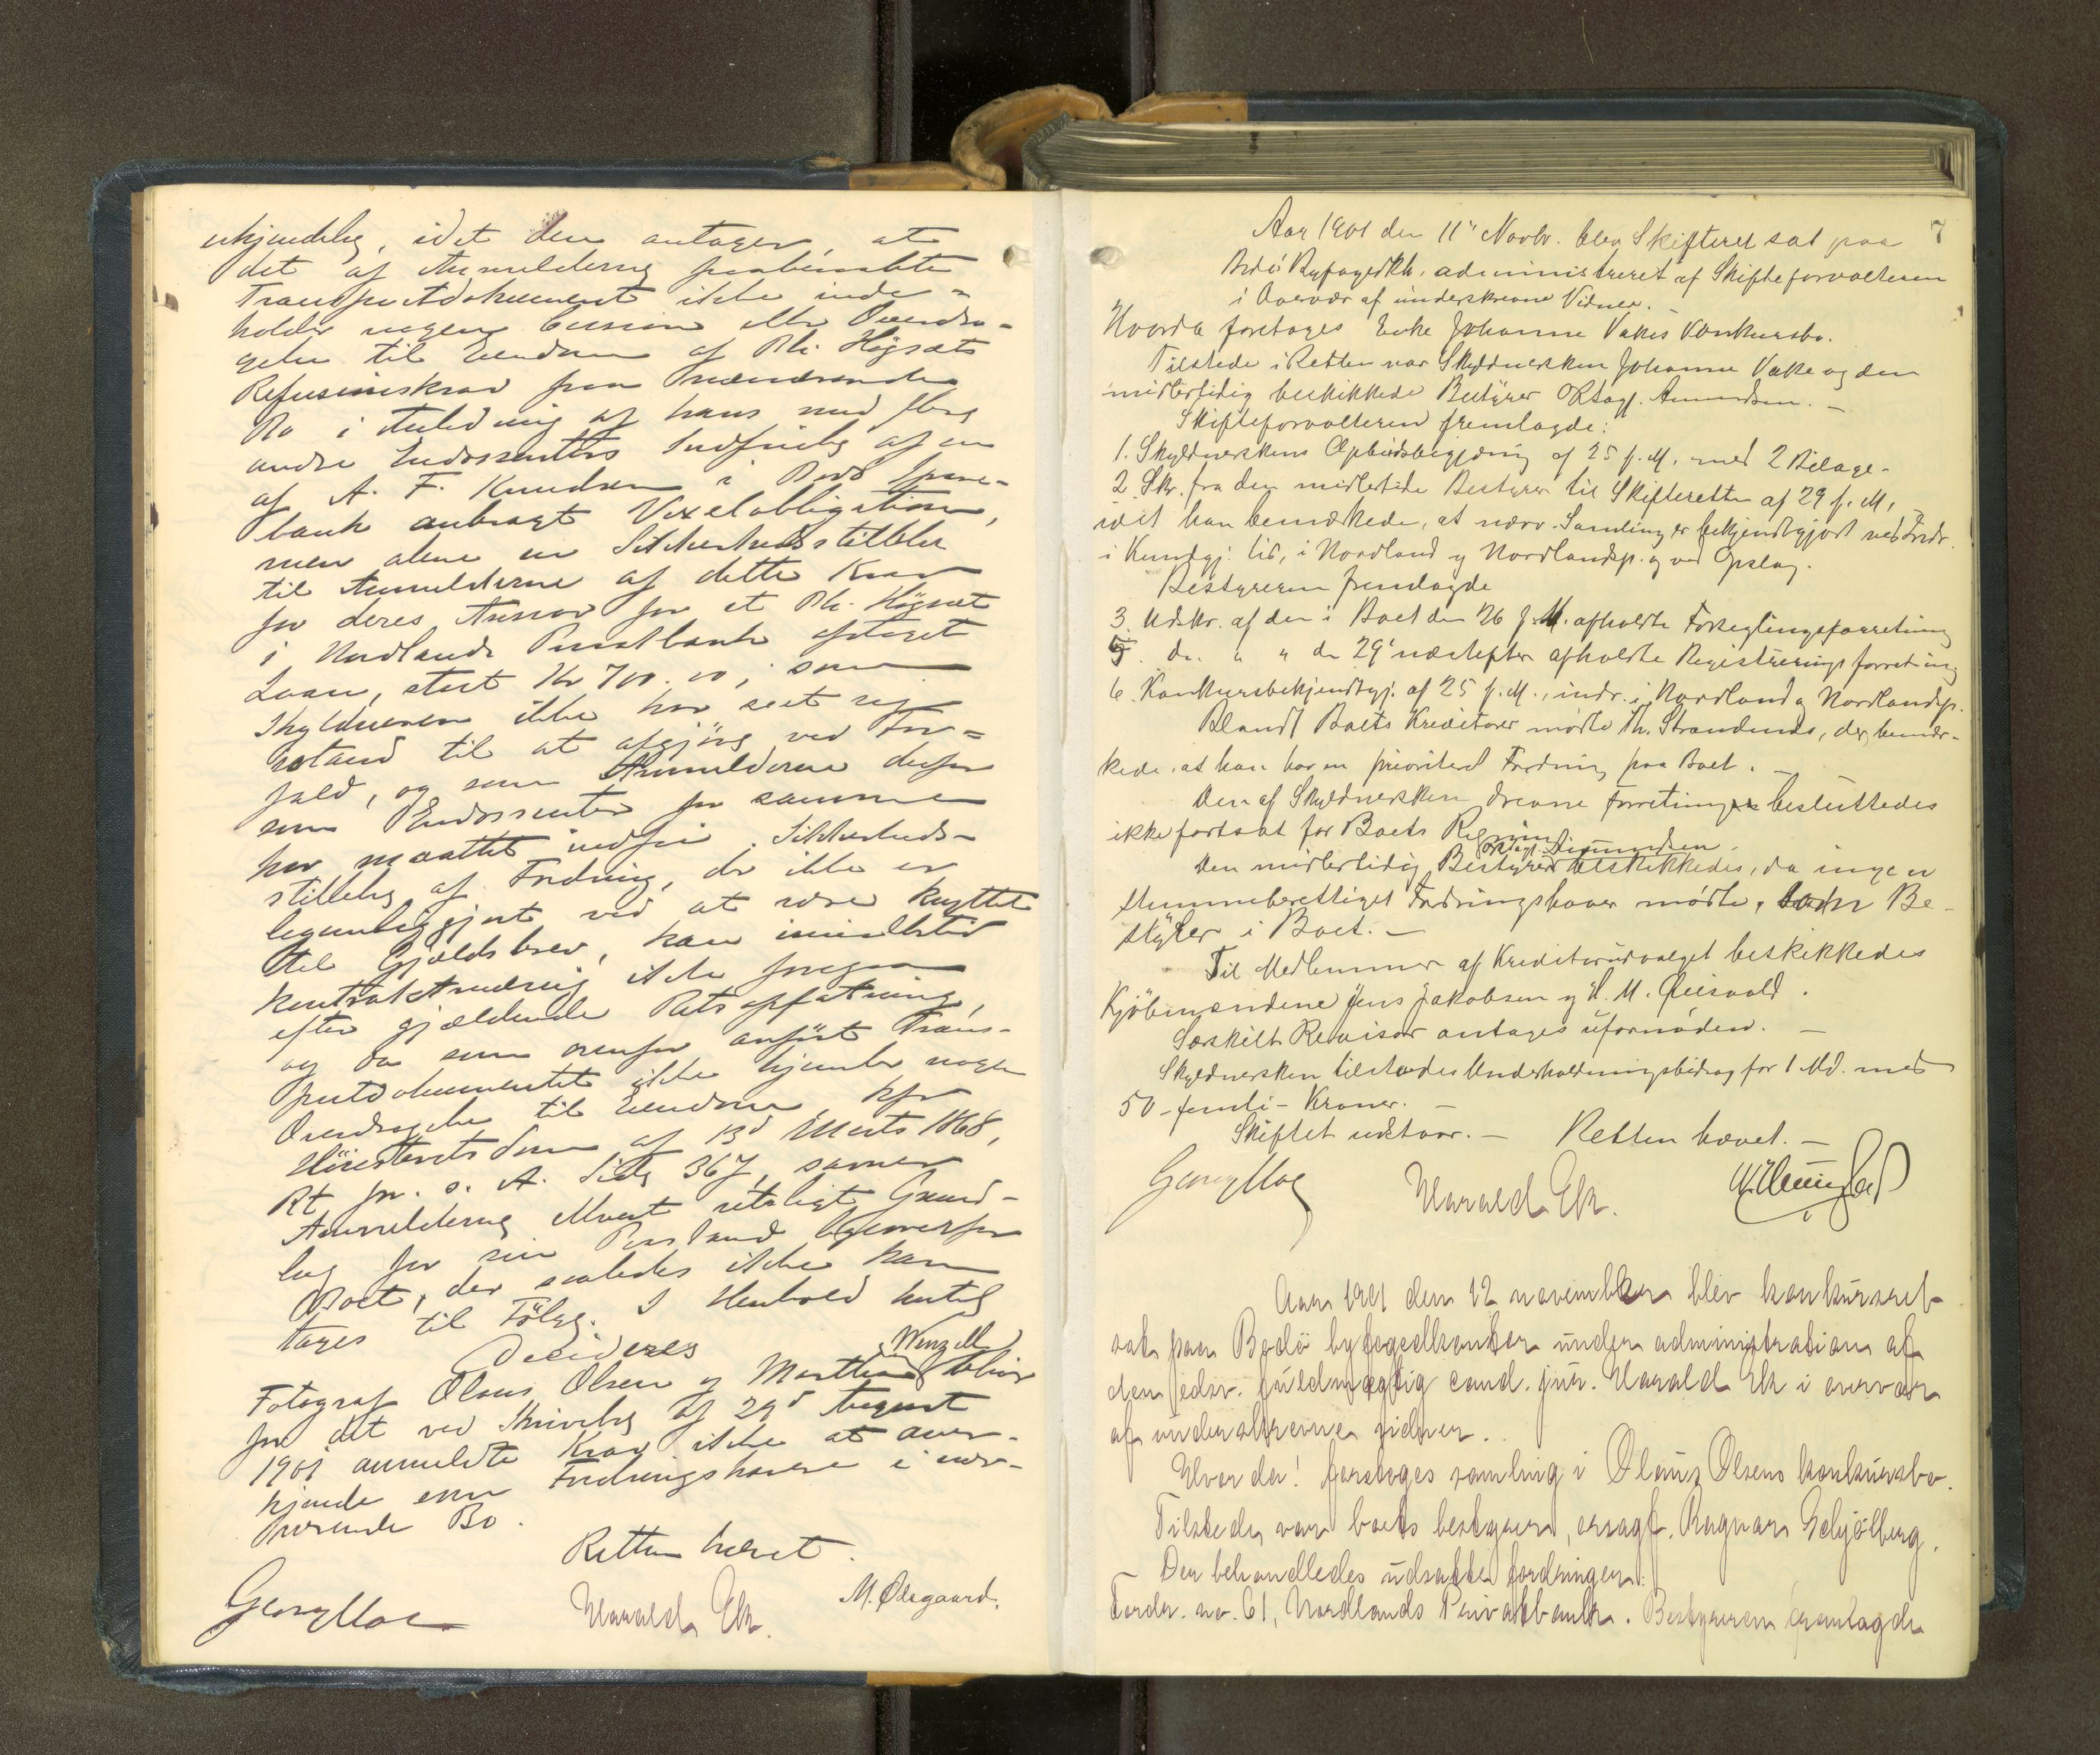 erkjendelse, idet den antager, at
det af Anmelderne paaberaabte
Transportdokument ikke inde-
holder nogen Cession eller Overdra-
gelse til Eiendom af Ph. Högsæts
Refusionskrav paa nærværende
Bo i Anledning af hans med flere
andre Endossenters Indfrielse af en
af A. F. Knudsen i Bodö Spare-
bank anbragt Vexelobligation,
men alene en Sikkerhedsstillelse
til Anmelderne af dette Krav
for deres Ansvar for et Ph. Högsæt
i Nordlands Privatbank optaget
Laan, stort Kr 700.00, som
Skyldneren ikke har seet sig
istand til at afgjöre ved For-
fald, og som Anmelderne derfor
som Endossenter for samme
har maattet indfri. Sikkerheds-
stillelse af Fordring, der ikke er
legemliggjort ved at være knyttet
til Gjældsbrev, kan imidlertid
Kontraktmæssig ikke foregaa
efter gjældende Retsopfatning,
og da som ovenfor anfört Trans-
portdokumentet ikke hjemler nogen
Overdragelse til Eiendom kfr
Höiesteretsdom af 13d Marts 1868,
Rt for s. A. Side 367, savner
Anmelderne ethvert retsligt Grund-
lag for sin Paastand ligeoverfor
Boet, der saaledes ikke kan
tages til Fölge. I Henhold hertil
Decideres
Fotograf Olaus Olsen og Marthin Wenzell bliver
for det ved Skrivelse af 29d August
1901 anmeldte Krav ikke at aner-
kjende som Fordringshavere i nær-
værende Bo.
Retten hævet.
Georg Moe Harald Ek. M. Ödegaard.
7
Aar 1901 den 11' Novbr. blev Skifteret sat paa
Bodö Byfogedkt. administreret af Skifteforvalteren
i Overvær af underskrevne Vidner.
Hvorda foretoges Enke Johanne Vakes Konkursbo.
Tilstede i Retten var Skyldnersken Johanne Vake og den
midlertidig beskikkede Bestyrer O.R.Sagf. Amundsen. -
Skifteforvalteren fremlagde:
1. Skyldnerskens Opbudsbegjæring af 25 f. M. med 2 Bilage.
2. Skr. fra den midlertide Bestyrer til Skifteretten af 29 f. M.,
idet han bemærkede, at nærv. Samling er bekjendtgjort ved Indr.
i Kundgj. tid., i Nordland og Nordlandsp. og ved Opslag.
Bestyreren fremlagde
3. Udskr. af den i Boet den 26 f. M. afholdte Forseglingsforretning
5. do. " " den 29' næstefter afholdte Registreringsforretning
6. Konkursbekjendtgj. af 25 f. M., indr. i Nordland og Nordlandsp.
Blandt Boets Kreditorer mödte Th. Strandmo, der bemær-
kede, at han har en prioriteret Fordring paa Boet. -
Den af Skyldnersken drevne Forretning besluttedes
ikke fortsat for Boets Regning.
Den midlertidig Bestyrer ORSagf. Amundsen beskikkedes, da ingen
stemmeberettiget Fordringshaver mödte, som Be-
styrer i Boet. -
Til Medlemmer af Kreditorudvalget beskikkedes
Kjöbmændene Jens Jakobsen og H. M. Queisvold.
Særskilt Revisor antages ufornöden. -
Skyldnersken tilstodes Underholdningsbidrag for 1 Md. med
50 - femti - Kroner. -
Skiftet udstaar. - Retten hævet. -
Georg Moe Harald Ek.
Aar 1901 den 12 november blev konkursret
sat paa Bodö byfogedkontor under administration af
den edsv. fuldmægtig cand. jur. Harald Ek i overvær
af underskrevne vidner.
Hvorda! foretoges samling i Olaus Olsens konkursbo.
Tilstede var boets bestyrer, orsagf. Ragnar Schjölberg.
Der behandledes udsatte fordringer:
Fordr. no. 61, Nordlands Privatbank. Bestyreren fremlagde